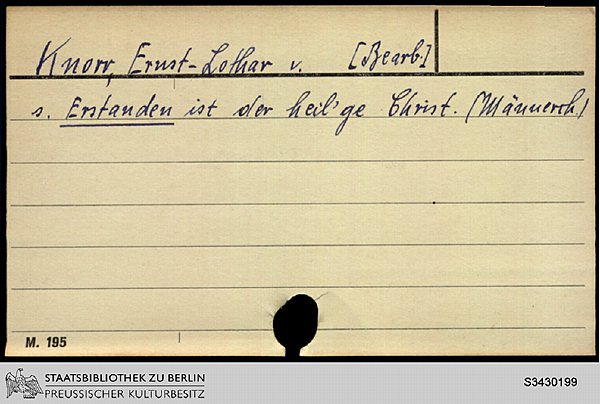 Knorr, Ernst-Lothar v. [Bearb.]
s. Erstanden ist der heil'ge Christ. (Männerch.)
M. 195
STAATSBIBLIOTHEK ZU BERLIN
PREUSSISCHER KULTURBESITZ
S3430199